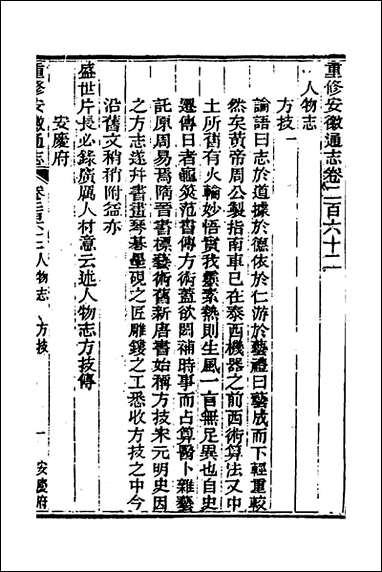 重修安徽通志卷二百六十二
人物志
方技一
論語曰志於道據於德依於仁游於藝禮曰藝成而下輕重較
然矣黃帝周公製指南車已在泰西機器之前西術算法又中
土所舊有火輪妙悟實我靈素熱則生風一言無足異也自史
遷傳日者龜筴范書傳方術蓋欲闕補時事而占算醫卜雜藝
託原周易焉隋晉書標藝術舊新唐書始稱方技宋元明史因
之方志遂幷書畫琴棊墨硯之匠雕鏤之工悉收方技之中今
沿舊文稍稍附益亦
盛世片長必錄廣厲人材意云述人物志方技傳
安慶府
重修安徽通志
卷二百六十二人物志
方技
一
安慶府